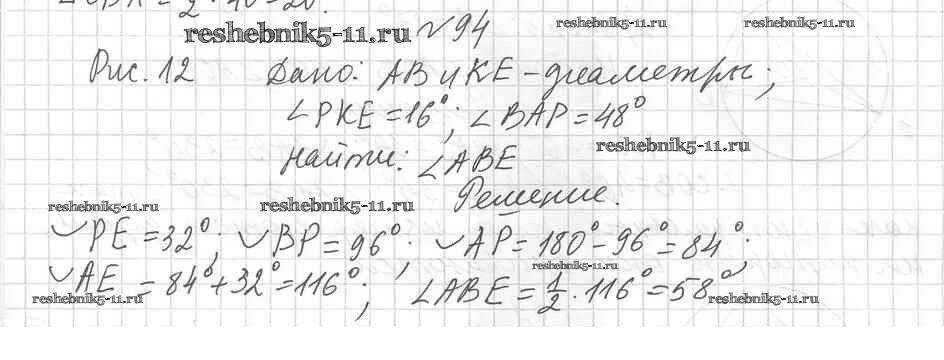 reshebnik5-11.ru №94 reshebnik5-11.ru
Рис. 12 Дано: AB и KE - диаметры;
∠PKE = 16°; ∠BAP = 48°
Найти: ∠ABE reshebnik5-11.ru
Решение.
reshebnik5-11.ru reshebnik5-11.ru
◡PE = 32°; ◡BP = 96°; ◡AP = 180° - 96° = 84°;
reshebnik5-11.ru
◡AE = 84° + 32° = 116°; ∠ABE = 1/2 · 116° = 58°
reshebnik5-11.ru reshebnik5-11.ru